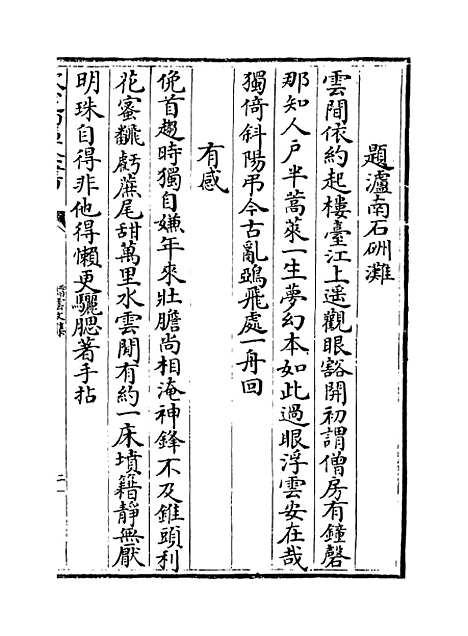 題瀘南石硎灘
雲間依約起樓臺江上遥觀眼豁開初謂僧房有鐘磬
那知人户半蒿萊一生夢幻本如此過眼浮雲安在哉
獨倚斜陽弔今古亂鴉飛處一舟回
有感
俛首趨時獨自嫌年來壯膽尚相淹神鋒不及錐頭利
花蜜翻虧蔗尾甜萬里水雲閒有約一床墳籍靜無厭
明珠自得非他得懶更驪腮著手拈